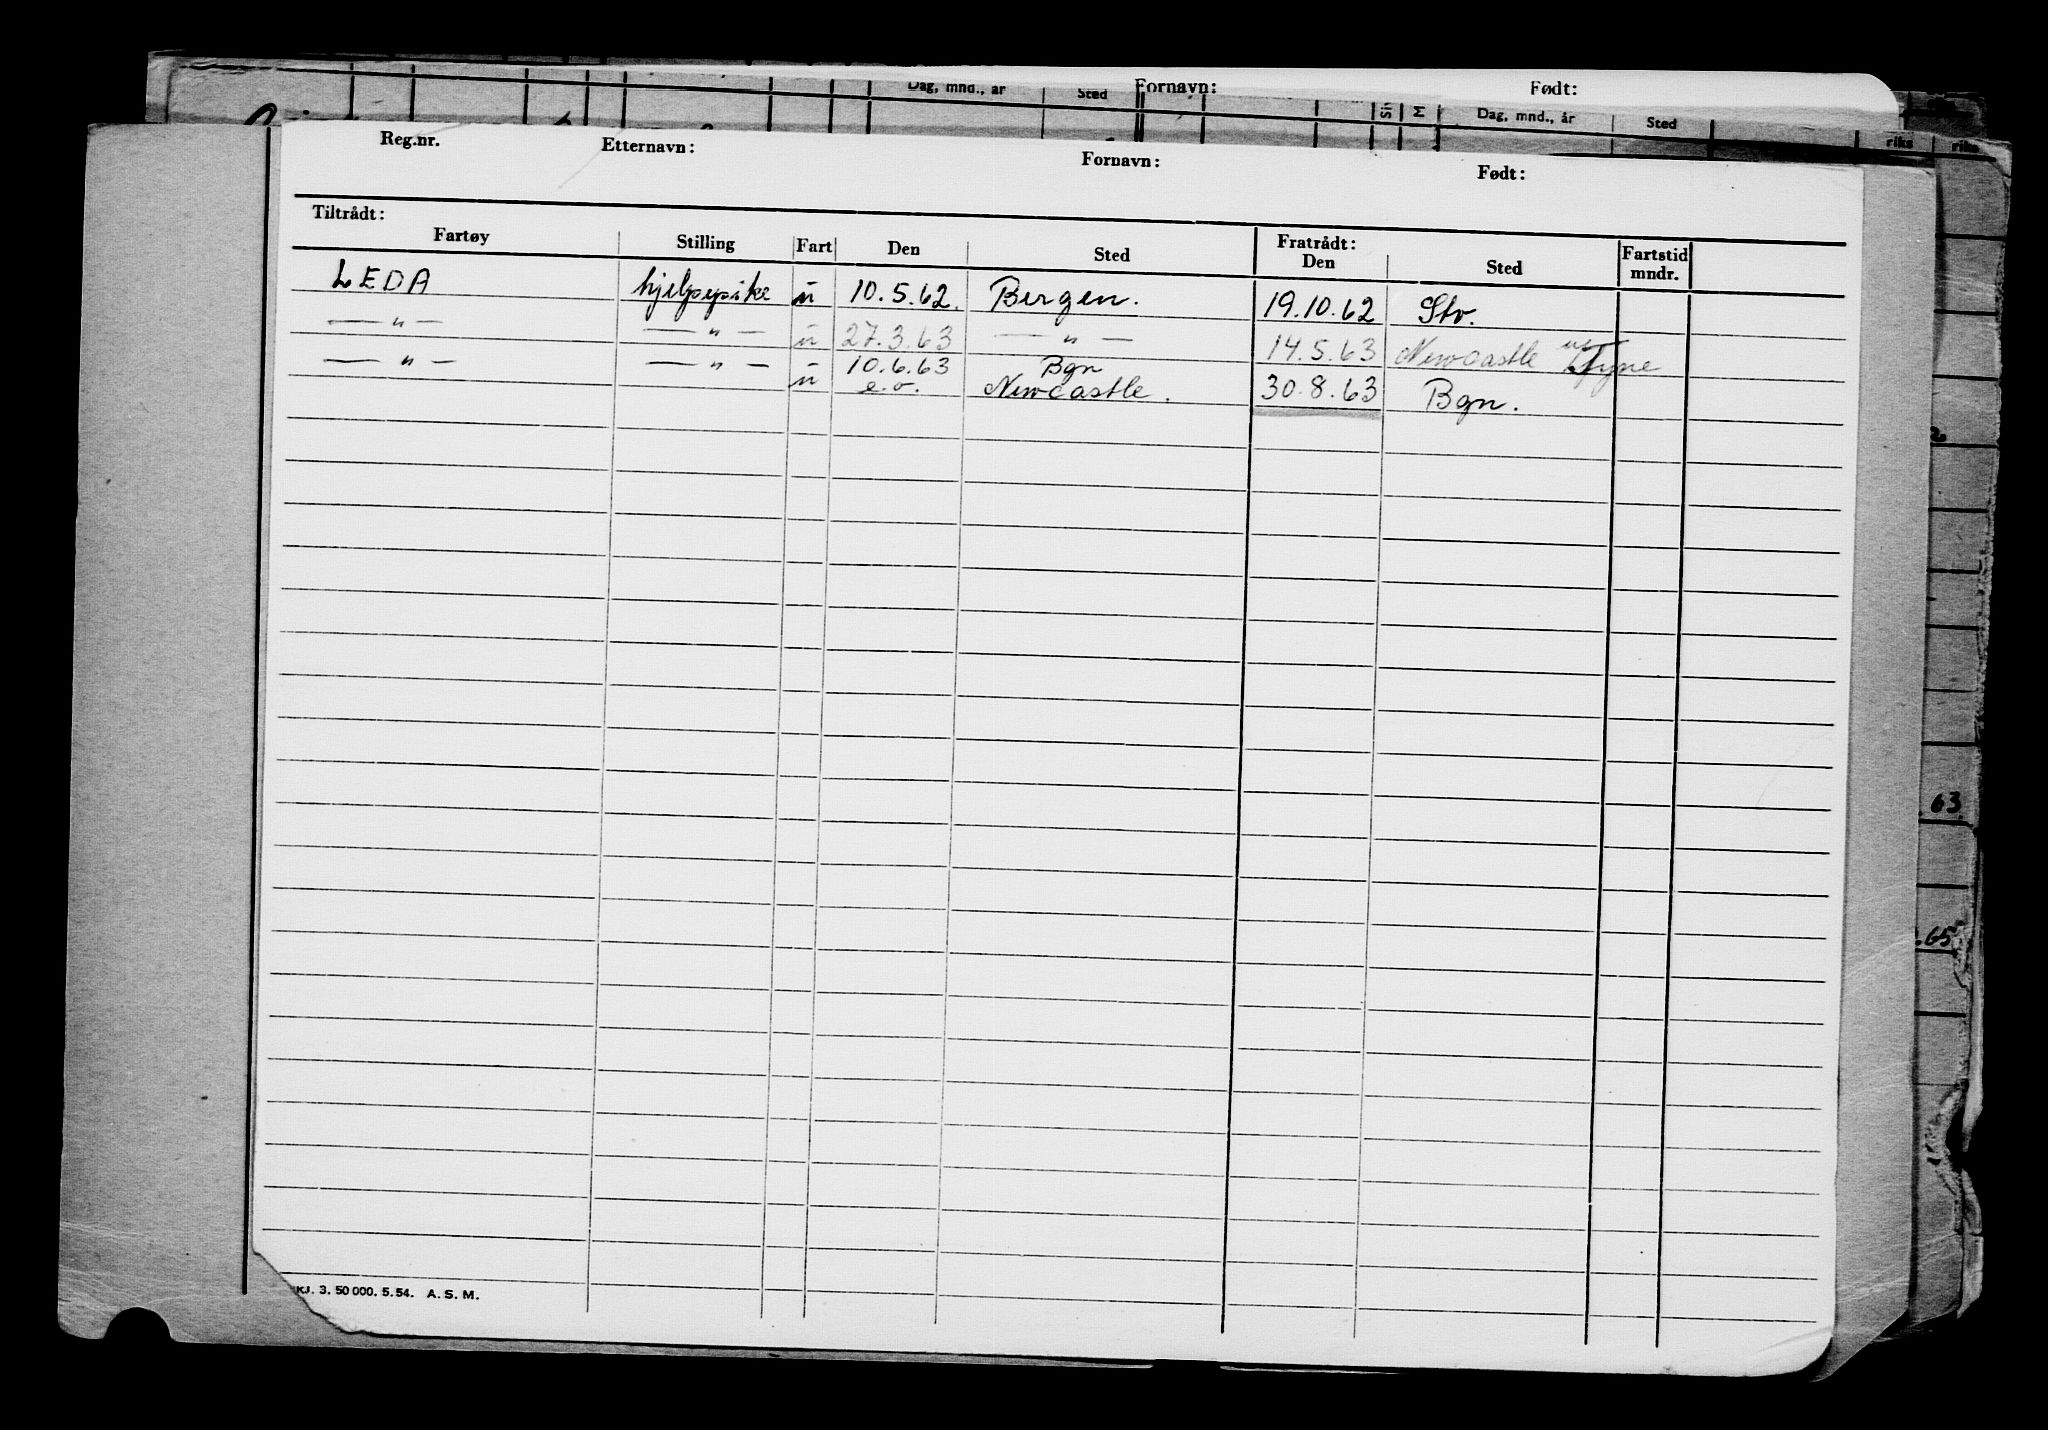 Fornavn: Født:
Dag, mnd., år Sted Dag, mnd., år Sted riks riks
Reg.nr. Etternavn: Fornavn: Født:
Tiltrådt: Fratrådt:
Fartøy Stilling Fart Den Sted Den Sted Fartstid mndr.
LEDA hjelpepike u 10.5.62. Bergen. 19.10.62 Stv.
— " — — " — u 27.3.63 — " — 14.5.63 Newcastle Tyne
— " — — " — u 10.6.63 Bgn
e.o. Newcastle. 30.8.63 Bgn.
63
.65
KJ. 3. 50 000. 5. 54. A. S. M.